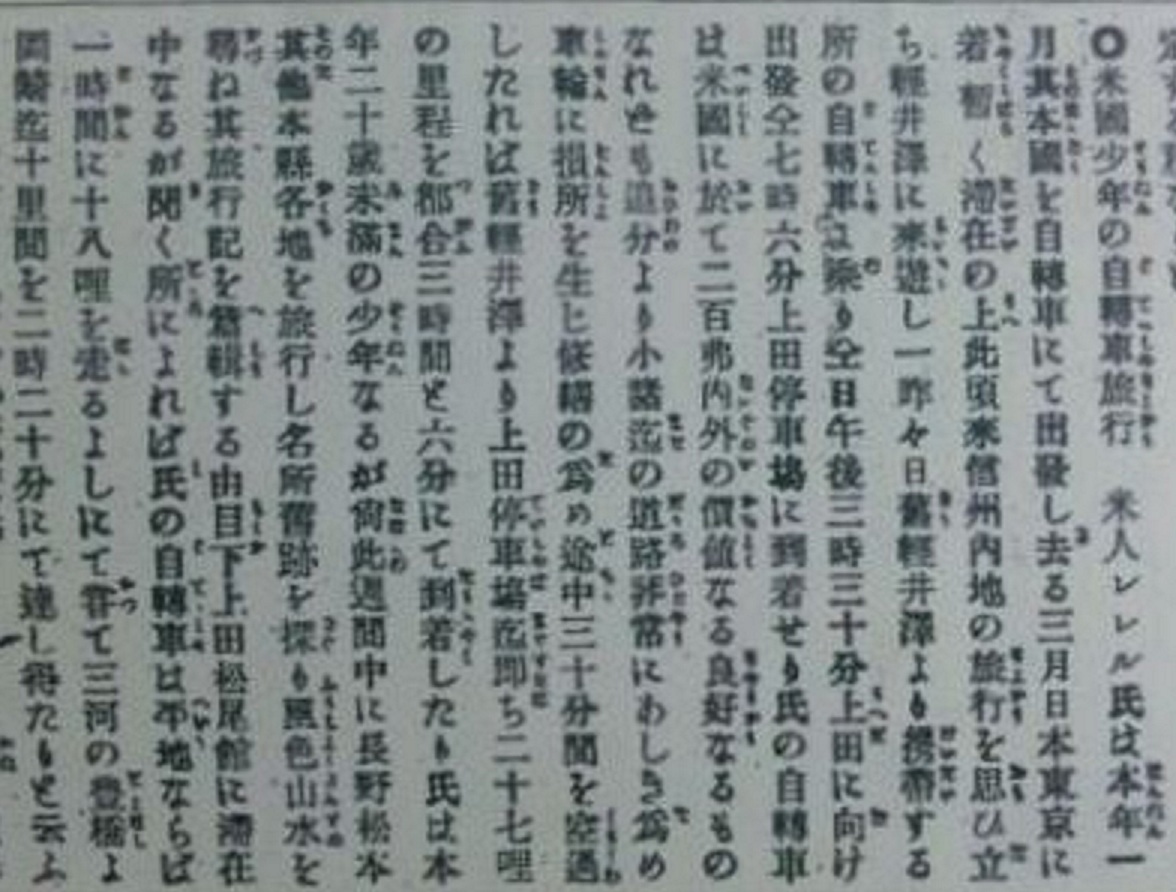 〇米國少年の自轉車旅行　米人レレル氏は本年一
月其本國を自轉車にて出發し去る三月日本東京に
着暫く滯在の上此頃來信州内地の旅行を思ひ立
ち輕井澤に來遊し一昨々日舊輕井澤より携帶する
所の自轉車に乘り仝日午後三時三十分上田に向け
出發仝七時六分上田停車塲に到着せり氏の自轉車
は米國に於て二百弗内外の價値なる良好なるもの
なれども追分より小諸迄の道路非常にあしき爲め
車輪に損所を生じ修繕の爲め途中三十分間を空過
したれば舊輕井澤より上田停車塲迄即ち二十七哩
の里程を都合三時間と六分にて到着したり氏は本
年二十歳未滿の少年なるが尙此週間中に長野松本
其他本縣各地を旅行し名所舊跡を探り風色山水を
尋ね其旅行記を編輯する由目下上田松尾館に滯在
中なるが聞く所によれば氏の自轉車は平地ならば
一時間に十八哩を走るよしにて甞て三河の豊橋よ
岡崎迄十里間を二時二十分にて達し得たりと云ふ